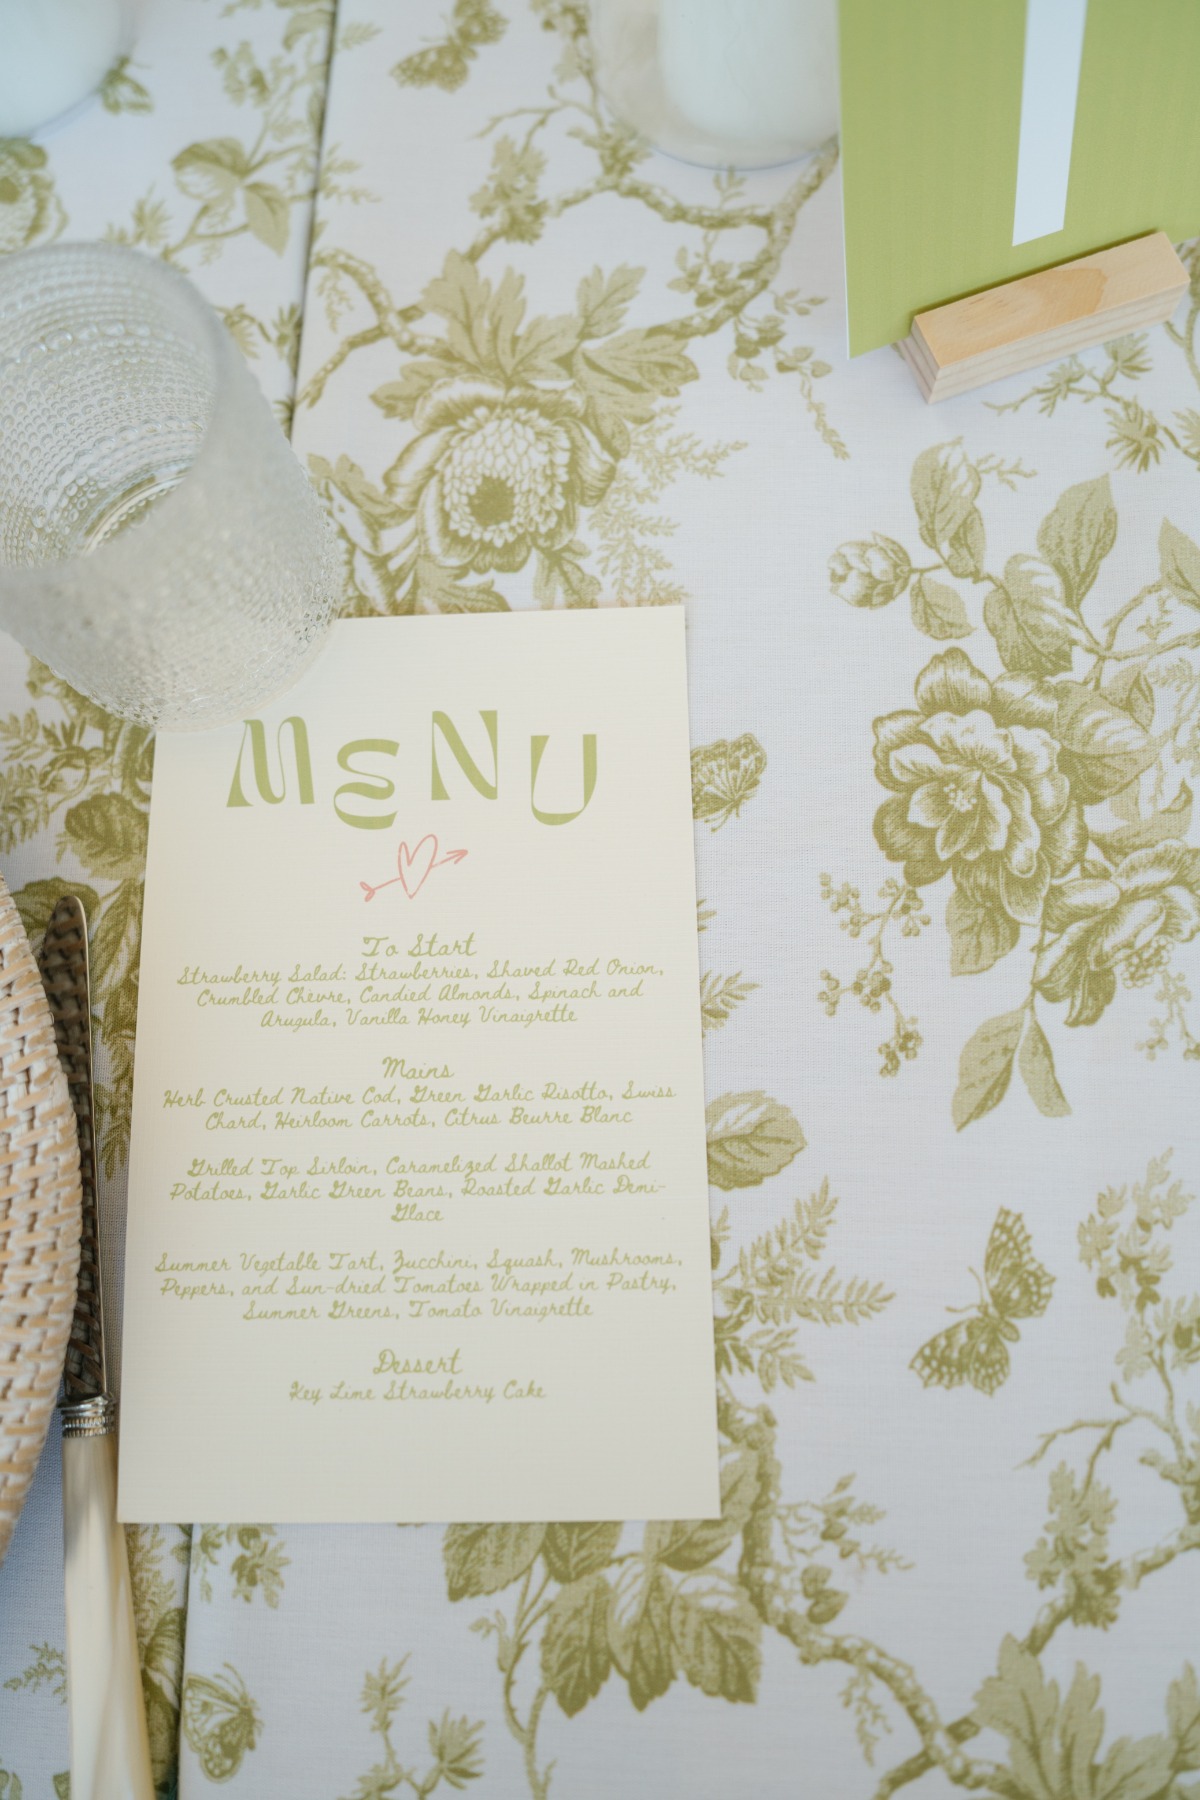 MENU
To Start
Strawberry Salad: Strawberries, Shaved Red Onion,
Crumbled Chèvre, Candied Almonds, Spinach and
Arugula, Vanilla Honey Vinaigrette
Mains
Herb Crusted Native Cod, Green Garlic Risotto, Swiss
Chard, Heirloom Carrots, Citrus Beurre Blanc
Grilled Top Sirloin, Caramelized Shallot Mashed
Potatoes, Garlic Green Beans, Roasted Garlic Demi-
Glace
Summer Vegetable Tart, Zucchini, Squash, Mushrooms,
Peppers, and Sun-dried Tomatoes Wrapped in Pastry,
Summer Greens, Tomato Vinaigrette
Dessert
Key Lime Strawberry Cake